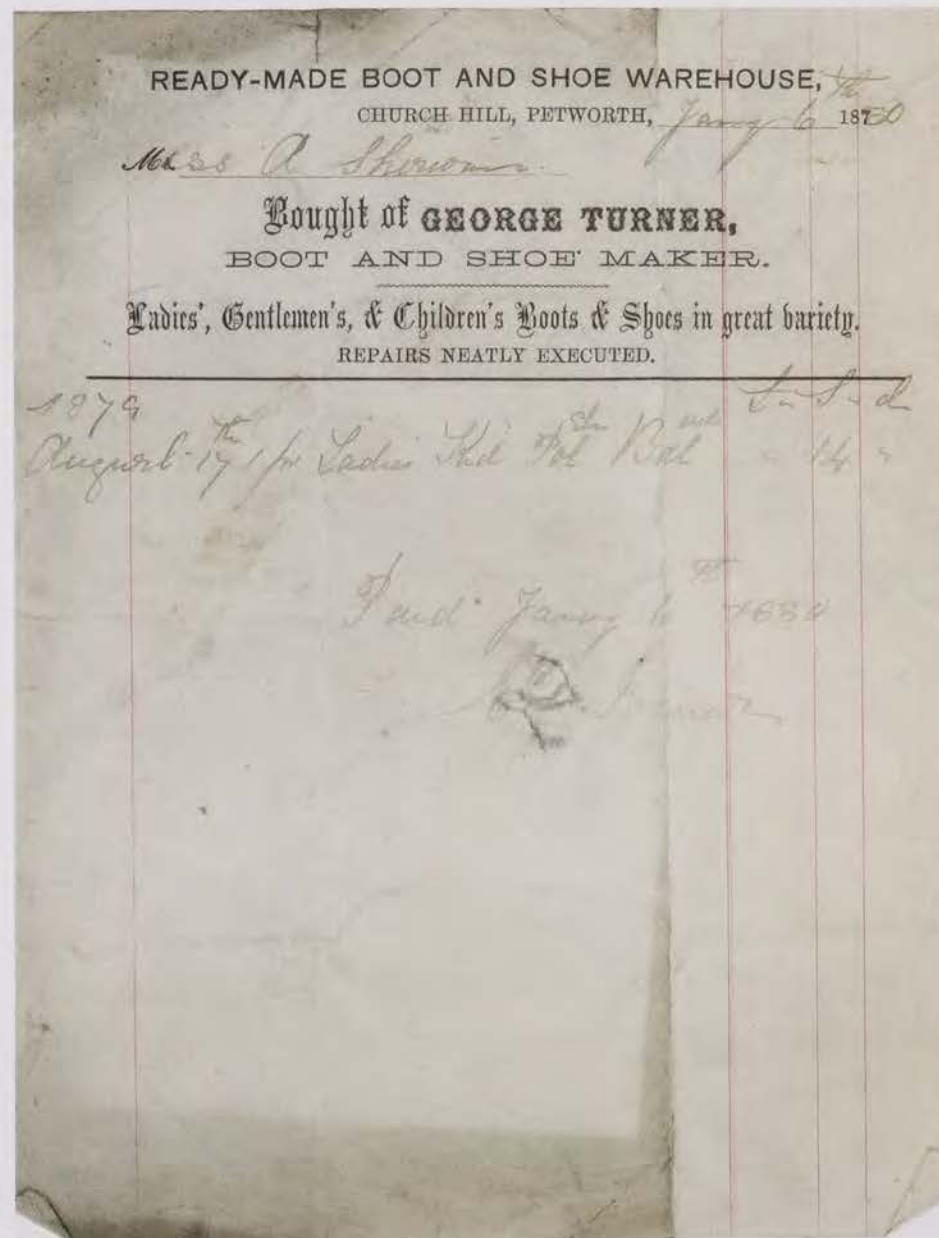 READY-MADE BOOT AND SHOE WAREHOUSE,
CHURCH HILL, PETWORTH, Jany 6th 1880
Miss A
Bought of GEORGE TURNER,
BOOT AND SHOE MAKER.
Ladies', Gentlemen's, & Children's Boots & Shoes in great variety.
REPAIRS NEATLY EXECUTED.
1879 £ S d
August 17th 1 pr Ladies Kid Bal " 14 "
Paid Jany 6th 1880